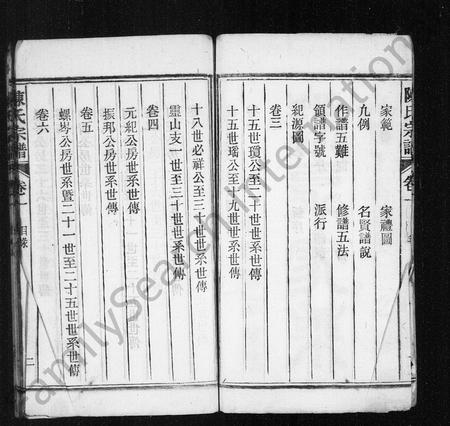 陳氏宗譜 卷一
家範 家禮圖
凡例 名賢譜說
作譜五難 修譜五法
領譜字號 派行
親源圖
卷三
十五世瓊公至二十世世系世傳
十五世瑞公至十九世世系世傳
十八世必祥公至三十世世系世傳
靈山支一世至三十世世系世傳
卷四
元紀公房世系世傳
振邦公房世系世傳
卷五
螺岑公房世系暨二十一世至二十五世世系世傳
卷六
陳氏宗譜 卷一 目錄 二
FamilySearch International